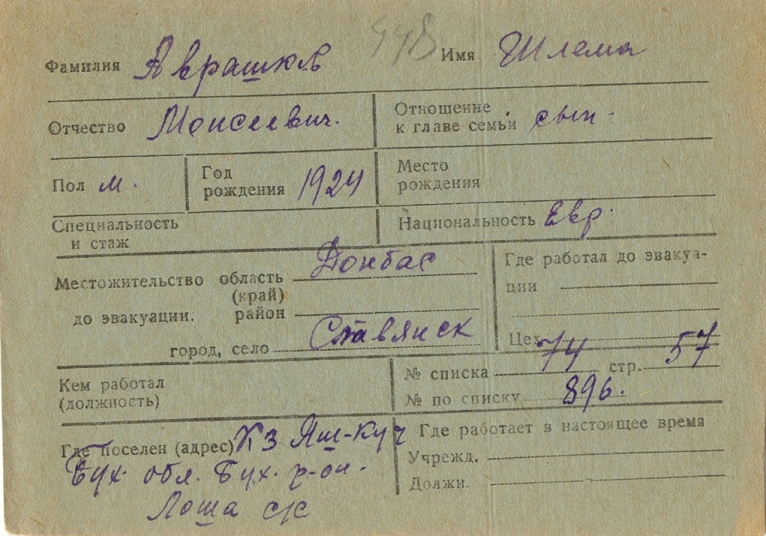 498
Фамилия Аврашков Имя Шлема
Отчество Моисеевич. Отношение
к главе семьи сын.
Пол м. Год
рождения 1924 Место
рождения
Специальность
и стаж Национальность Евр.
Местожительство область Донбас
(край)
до эвакуации. район
город, село Славянск
Где работал до эвакуа-
ции
Цех
Кем работал
(должность)
№ списка 74 стр. 57
№ по списку 896.
Где поселен (адрес) К/З Яш-Куч
Бух. обл. Бух. р-он.
Лоша с/с
Где работает в настоящее время
Учрежд.
Должн.